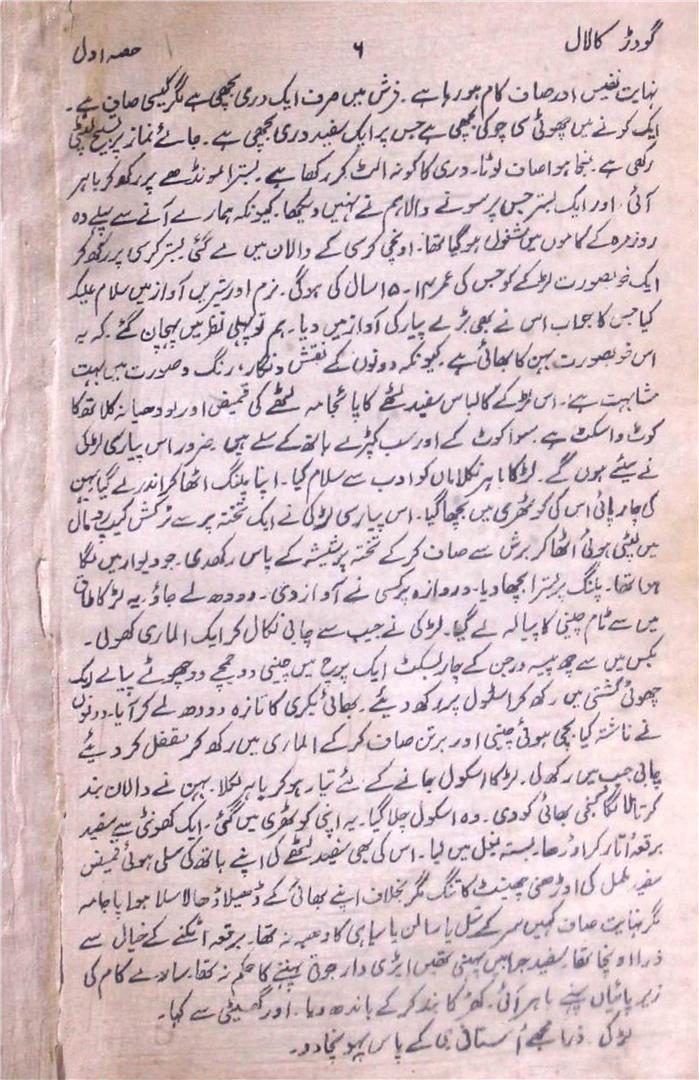 گودڑ کا لال ۶ حصہ اول
نہایت نفیس اور صاف کام ہو رہا ہے۔ فرش میں صرف ایک دری بچھی ہے مگر کیسی صاف ہے۔
ایک کونے میں چھوٹی سی چوکی بچھی ہے جس پر ایک سفید دری بچھی ہے۔ جائے نماز پر تسبیح لپٹی
رکھی ہے۔ منجا ہوا صاف لوٹا۔ دری کا کونہ الٹ کر رکھا ہے۔ بسترا مونڈھے پر رکھ کر باہر
آئی۔ اور ایک بستر جس پر سونے والا ہم نے نہیں دیکھا۔ کیونکہ ہمارے آنے سے پہلے وہ
روزمرہ کے کاموں میں مشغول ہو گیا تھا۔ اونچی کرسی کے دالان میں لے گئی بستر کرسی پر رکھ کر
ایک خوبصورت لڑکے کو جس کی عمر ۱۴۔ ۱۵ سال کی ہوگی۔ نرم اور شیریں آواز میں سلام علیک
کیا جس کا جواب اس نے بھی بڑے پیار کی آواز میں دیا۔ ہم تو پہلی نظر میں پہچان گئے۔ کہ یہ
اس خوبصورت بہن کا بھائی ہے۔ کیونکہ دونوں کے نقش و نگار، رنگ و صورت میں بہت
مشابہت ہے۔ اس لڑکے کا لباس سفید لٹھے کا پائجامہ لٹھے کی قمیض اور لودھیانہ کلاتھ کا
کوٹ واسکٹ ہے۔ سوا کوٹ کے اور سب کپڑے ہاتھ کے سلے ہیں۔ ضرور اس پیاری لڑکی
نے سیئے ہوں گے۔ لڑکا باہر نکلا ماں کو ادب سے سلام کیا۔ اپنا پلنگ اٹھا کر اندر لے گیا بہن
کی چارپائی اس کی کوٹھری میں بچھا گیا۔ اس پیاری لڑکی نے ایک تختہ پر سے ٹرکش کیپ رومال
میں لپٹی ہوئی اُٹھا کر برش سے صاف کر کے تختہ پر شیشہ کے پاس رکھدی۔ جو دیوار میں لگا
ہوا تھا۔ پلنگ پر بسترا بچھا دیا۔ دروازہ پر کسی نے آواز دی۔ دودھ لے جاؤ۔ یہ لڑکا طاق
میں سے تام چینی کا پیالہ لے گیا۔ لڑکی نے جیب سے چابی نکال کر ایک الماری کھولی۔
بکس میں سے چھ پیسہ درجن کے چار بسکٹ ایک پرچ میں چینی دو چمچے دو چھوٹے پیالے ایک
چھوٹی کشتی میں رکھ کر اسٹول پر رکھ دیئے۔ بھائی بکری کا تازہ دودھ لے کر آیا۔ دونوں
نے ناشتہ کیا بچی ہوئی چینی اور برتن صاف کر کے الماری میں رکھ کر مقفل کر دیئے
چابی جیب میں رکھ لی۔ لڑکا اسکول جانے کے لئے تیار ہو کر باہر نکلا۔ بہن نے دالان بند
کر تالا لگا کنجی بھائی کو دی۔ وہ اسکول چلا گیا۔ یہ اپنی کوٹھری میں گئی۔ ایک کھونٹی سے سفید
برقعہ اُتار کر اوڑھا۔ بستہ بغل میں لیا۔ اس کی بھی سفید لٹھے کی اپنے ہاتھ کی سلی ہوئی قمیض
سفید ململ کی اوڑھنی چھینٹ کا تنگ مگر بخلاف اپنے بھائی کے ڈھیلا ڈھالا سلا ہوا پاجامہ
مگر نہایت صاف کہیں سر کے تیل یا سالن یا سیاہی کا دھبہ نہ تھا۔ برقعہ اٹکنے کے خیال سے
ذرا اونچا تھا۔ سفید جرابیں پہنی تھیں ایڑی دار جوتی پہننے کا حکم نہ تھا۔ سادے کام کی
زیر پائیاں پہنے باہر آئی۔ کھڑکا بند کر کے باندھ دیا۔ اور گھسیٹی سے کہا۔
لڑکی۔ ذرا مجھے اُستانی جی کے پاس پہونچا دو۔